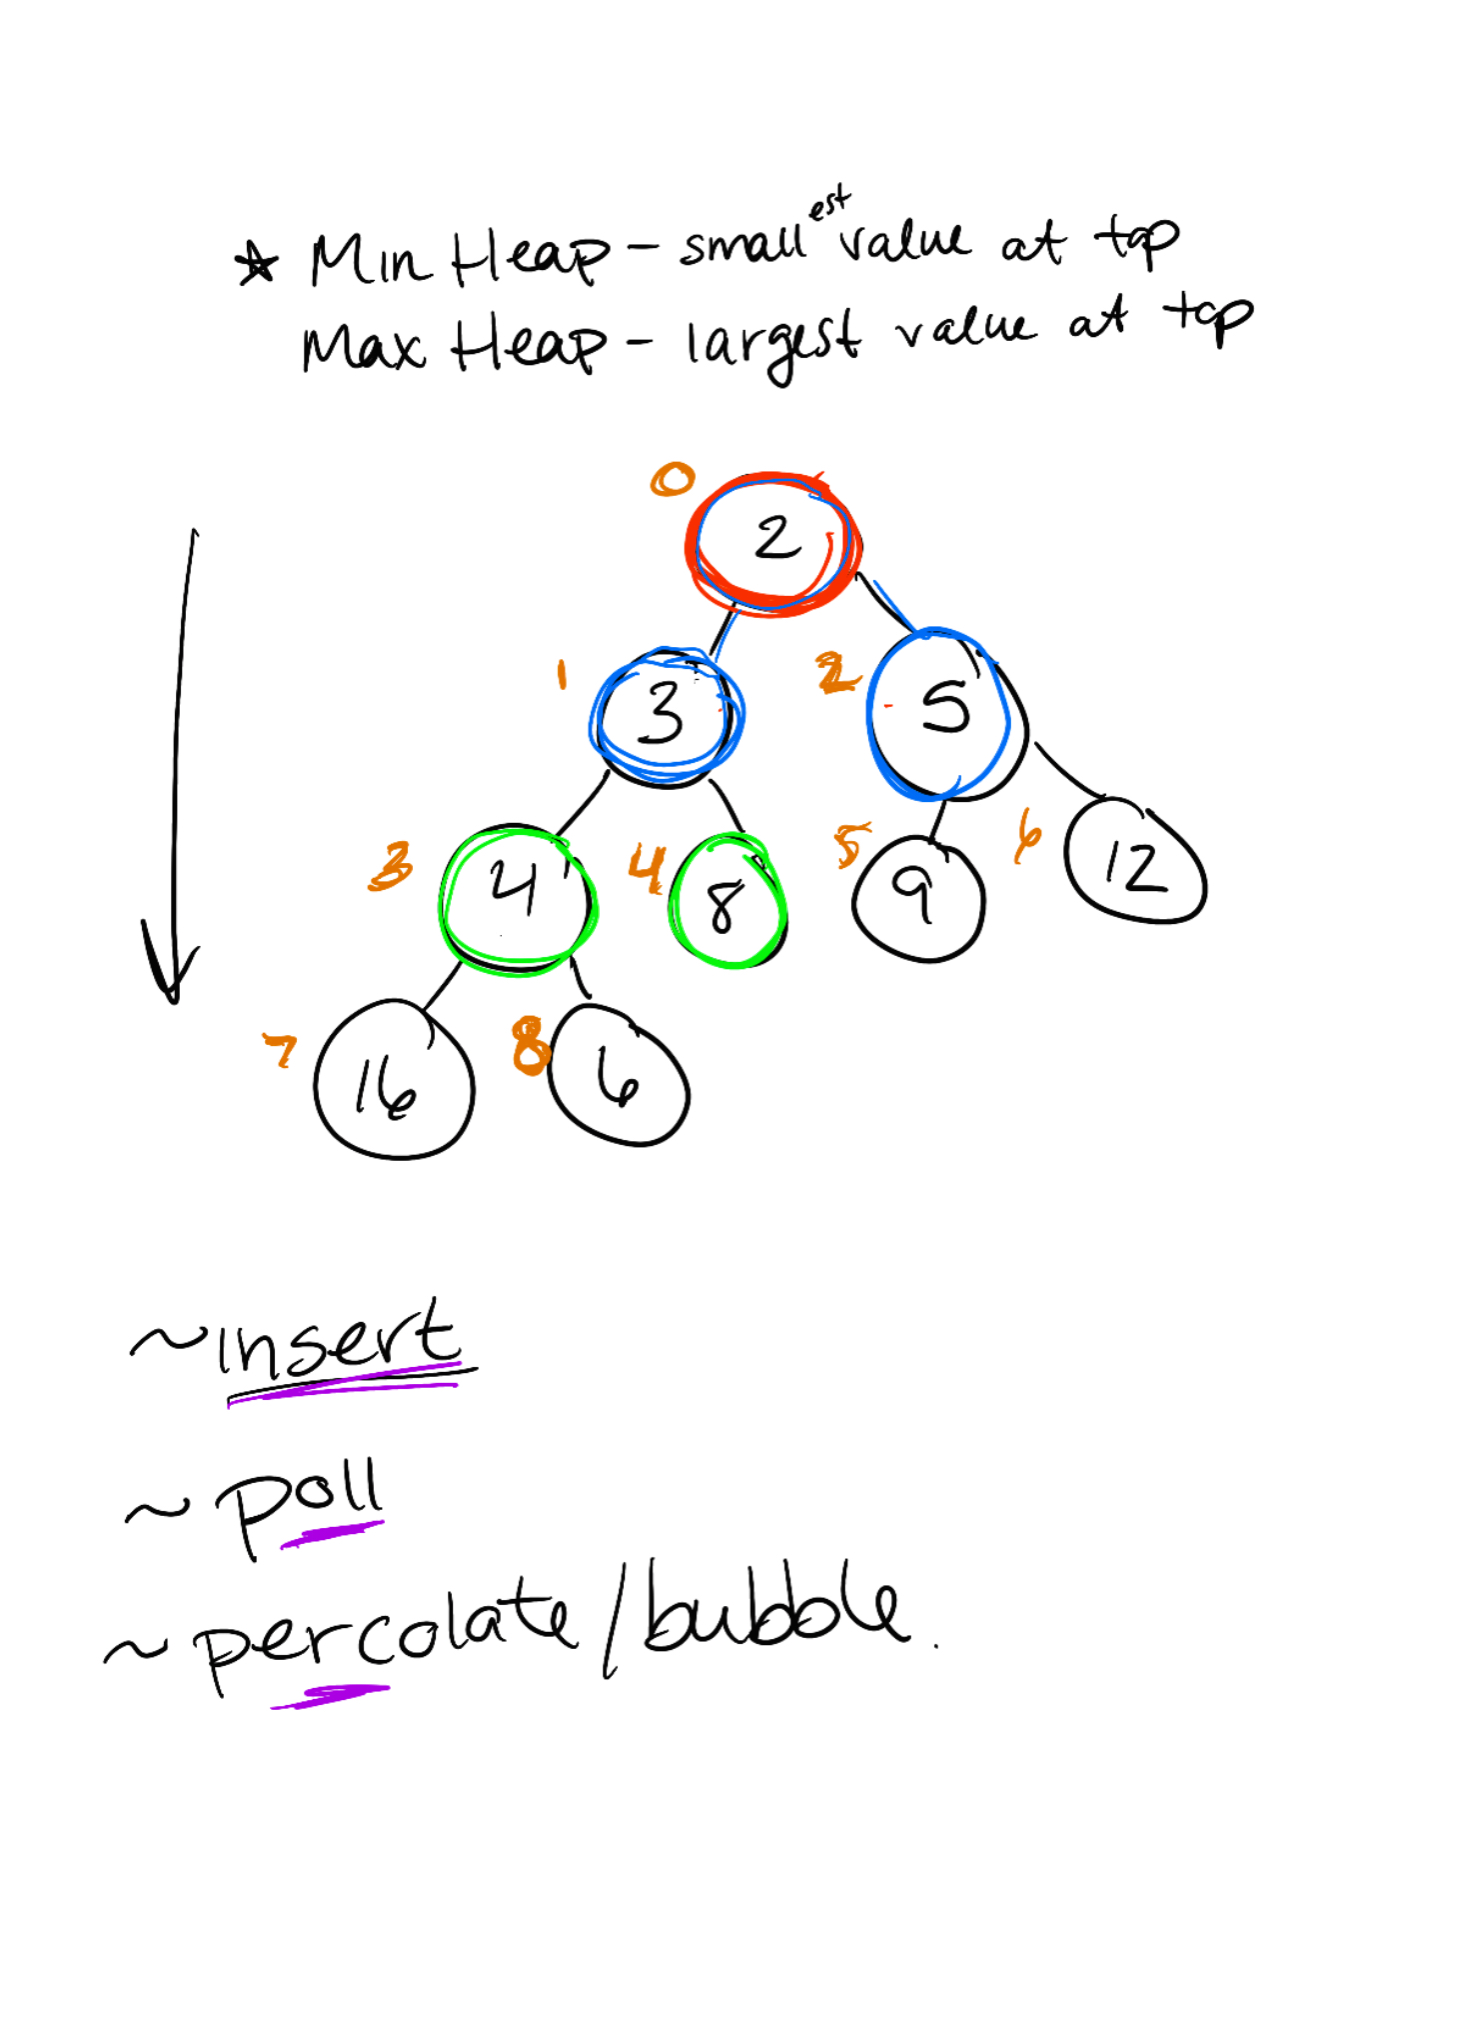 ★ Min Heap - smallest value at top
Max Heap - largest value at top
0
2
1
3
2
5
3
4
4
8
5
9
6
12
7
16
8
6
~insert
~poll
~percolate/bubble.